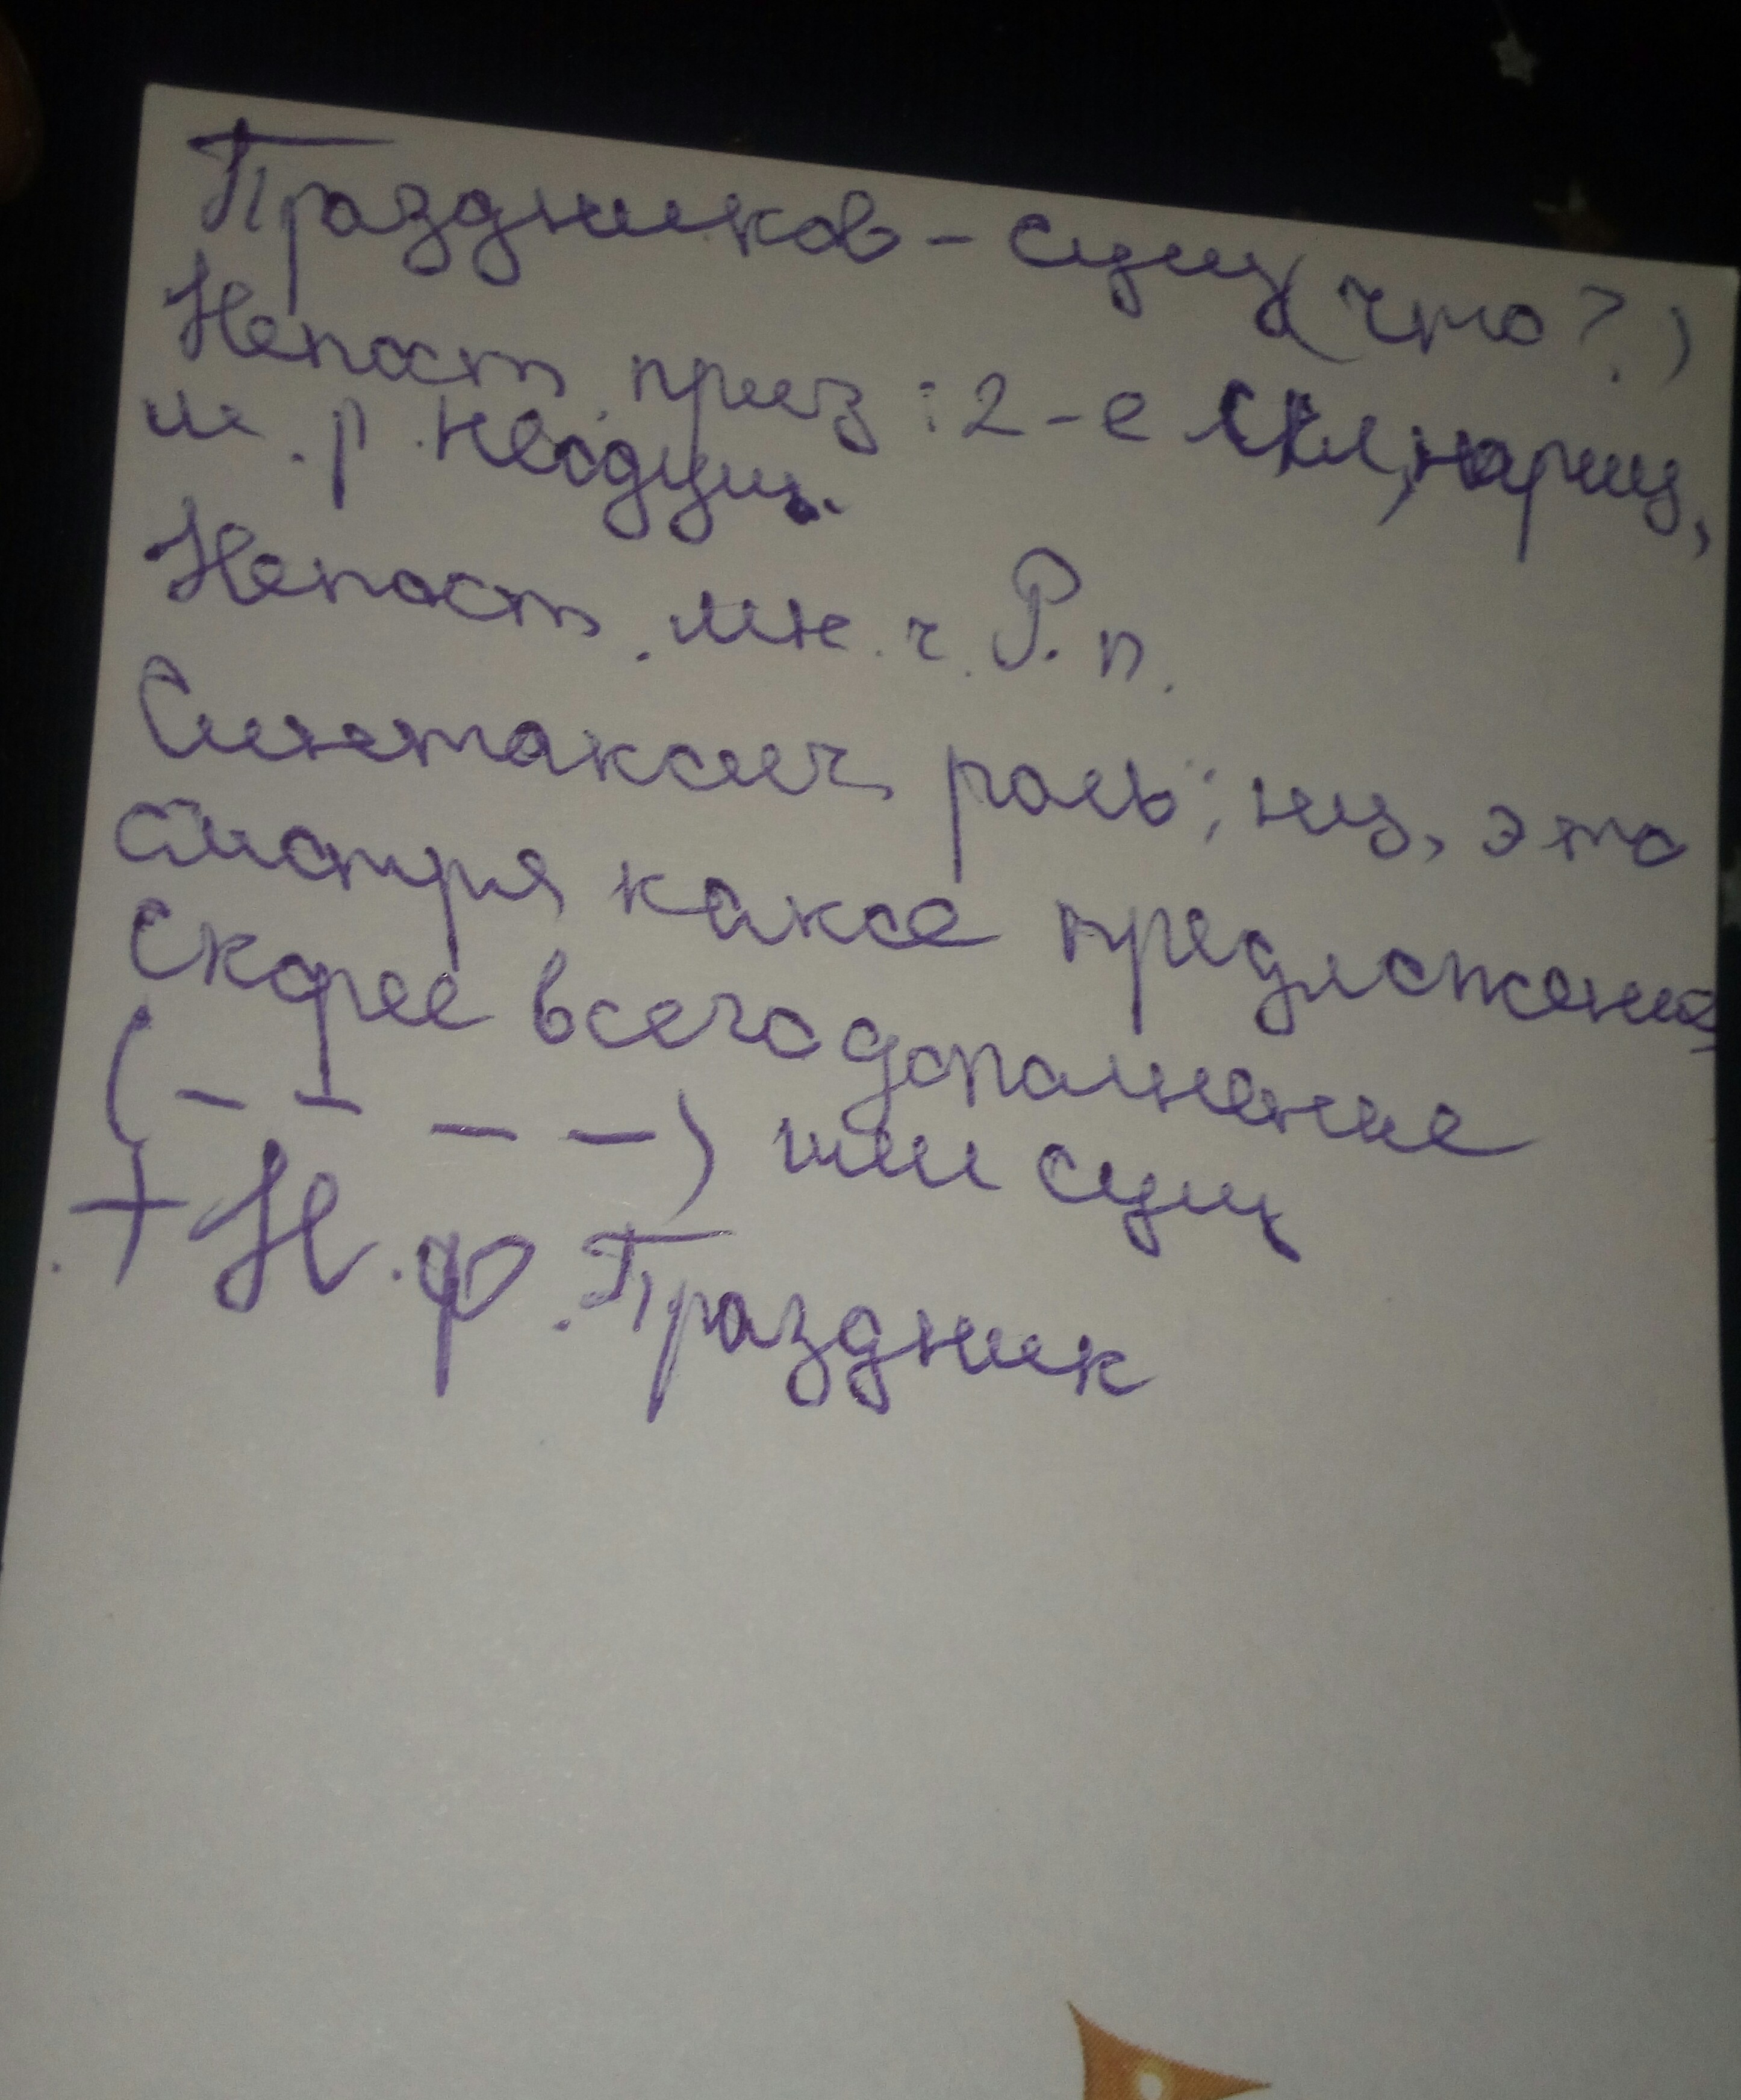 Праздников - сущ (что?)
Непост. приз: 2-е скл, нариц,
м.р. неодуш.
Непост. мн. ч. Р. п.
Синтаксич роль: ну, это
смотря какое предложение,
Скорее всего дополнение
(_ _ _ _) или сущ
+ Н.ф. Праздник